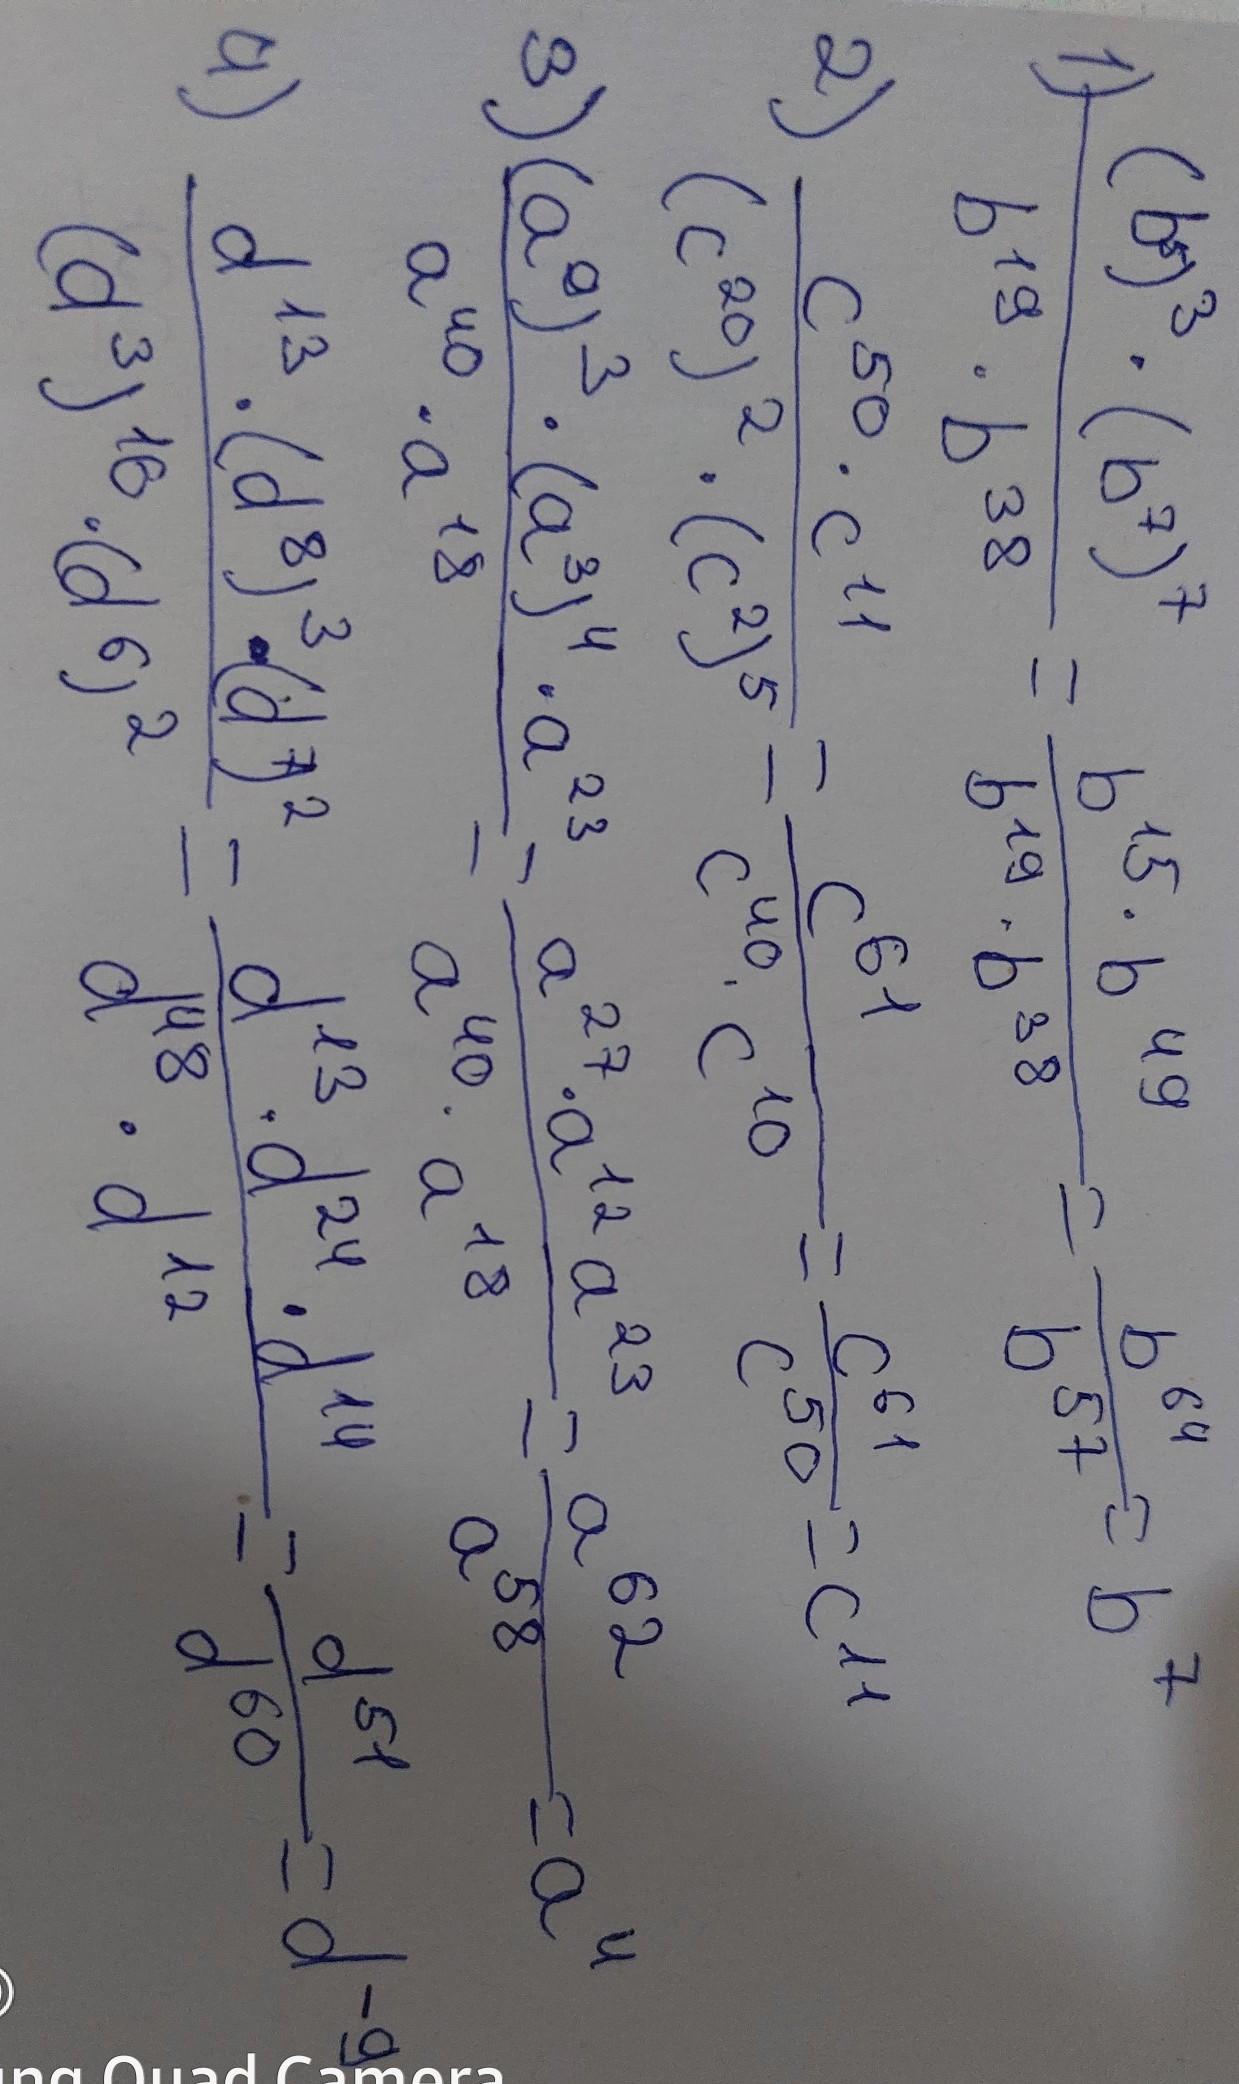 1) (b⁵)³ · (b⁷)⁷ / b¹⁹ · b³⁸ = b¹⁵ · b⁴⁹ / b¹⁹ · b³⁸ = b⁶⁴ / b⁵⁷ = b⁷
2) c⁵⁰ · c¹¹ / (c²⁰)² · (c²)⁵ = c⁶¹ / c⁴⁰ · c¹⁰ = c⁶¹ / c⁵⁰ = c¹¹
3) (a⁹)³ · (a³)⁴ · a²³ / a⁴⁰ · a¹⁸ = a²⁷ · a¹² a²³ / a⁴⁰ · a¹⁸ = a⁶² / a⁵⁸ = a⁴
4) d¹³ · (d⁸)³ · (d⁷)² / (d³)¹⁶ · (d⁶)² = d¹³ · d²⁴ · d¹⁴ / d⁴⁸ · d¹² = d⁵¹ / d⁶⁰ = d⁻⁹
Quad Camera